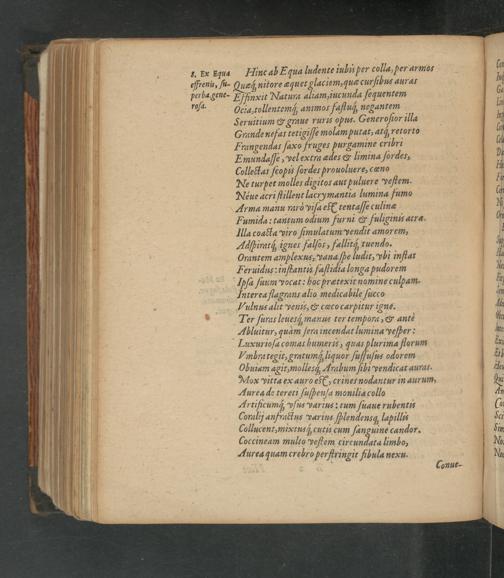 8. Ex Equa
effrenis, su-
perba, gene-
rosa.
Hinc ab Equa ludente iubis per colla, per armos
Quæq́; nitore æquet glaciem, quæ cursibus auras
Effinxit Natura aliam, iucunda sequentem
Ocia, tollentemq́; animos fastuq́; negantem
Seruitium & graue ruris opus. Generosior illa
Grande nefas tetigisse molam putat, atq́; retorto
Frangendas saxo fruges purgamine cribri
Emundasse, vel extra ædes & limina sordes,
Collectas scopis sordes prouoluere, cæno
Ne turpet molles digitos aut puluere vestem.
Néue acri stillent lacrymantia lumina fumo
Arma manu rarò visa est tentasse culinæ
Fumida: tantum odium furni & fuliginis atræ.
Illa coacta viro simulatum vendit amorem,
Adspiratq́; ignes falsos, fallitq́; tuendo.
Orantem amplexus, vana spe ludit, vbi instat
Feruidus: instantis fastidia longa pudorem
Ipsa suum vocat: hoc prætexit nomine culpam.
Interea flagrans alio medicabile succo
Vulnus alit venis, & cæco carpitur igne.
Ter suras leuesq́; manus ter tempora, & antè
Abluitur, quàm sera incendat lumina vesper:
Luxuriosa comas humeris, quas plurima florum
Vmbra tegit, gratumq́; liquor suffusus odorem
Obuiam agit, mollesq́; Arabum sibi vendicat auras.
Mox vitta ex auro est, crines nodantur in aurum,
Aurea de tereti suspensa monilia collo
Artificumq́; vsus varius: tum suaue rubentis
Coralij anfractus varius splendensq́; lapillis
Collucent, mixtusq́; cutis cum sanguine candor.
Coccineam multo vestem circundata limbo,
Aurea quam crebro perstringit fibula nexu.
Conue-